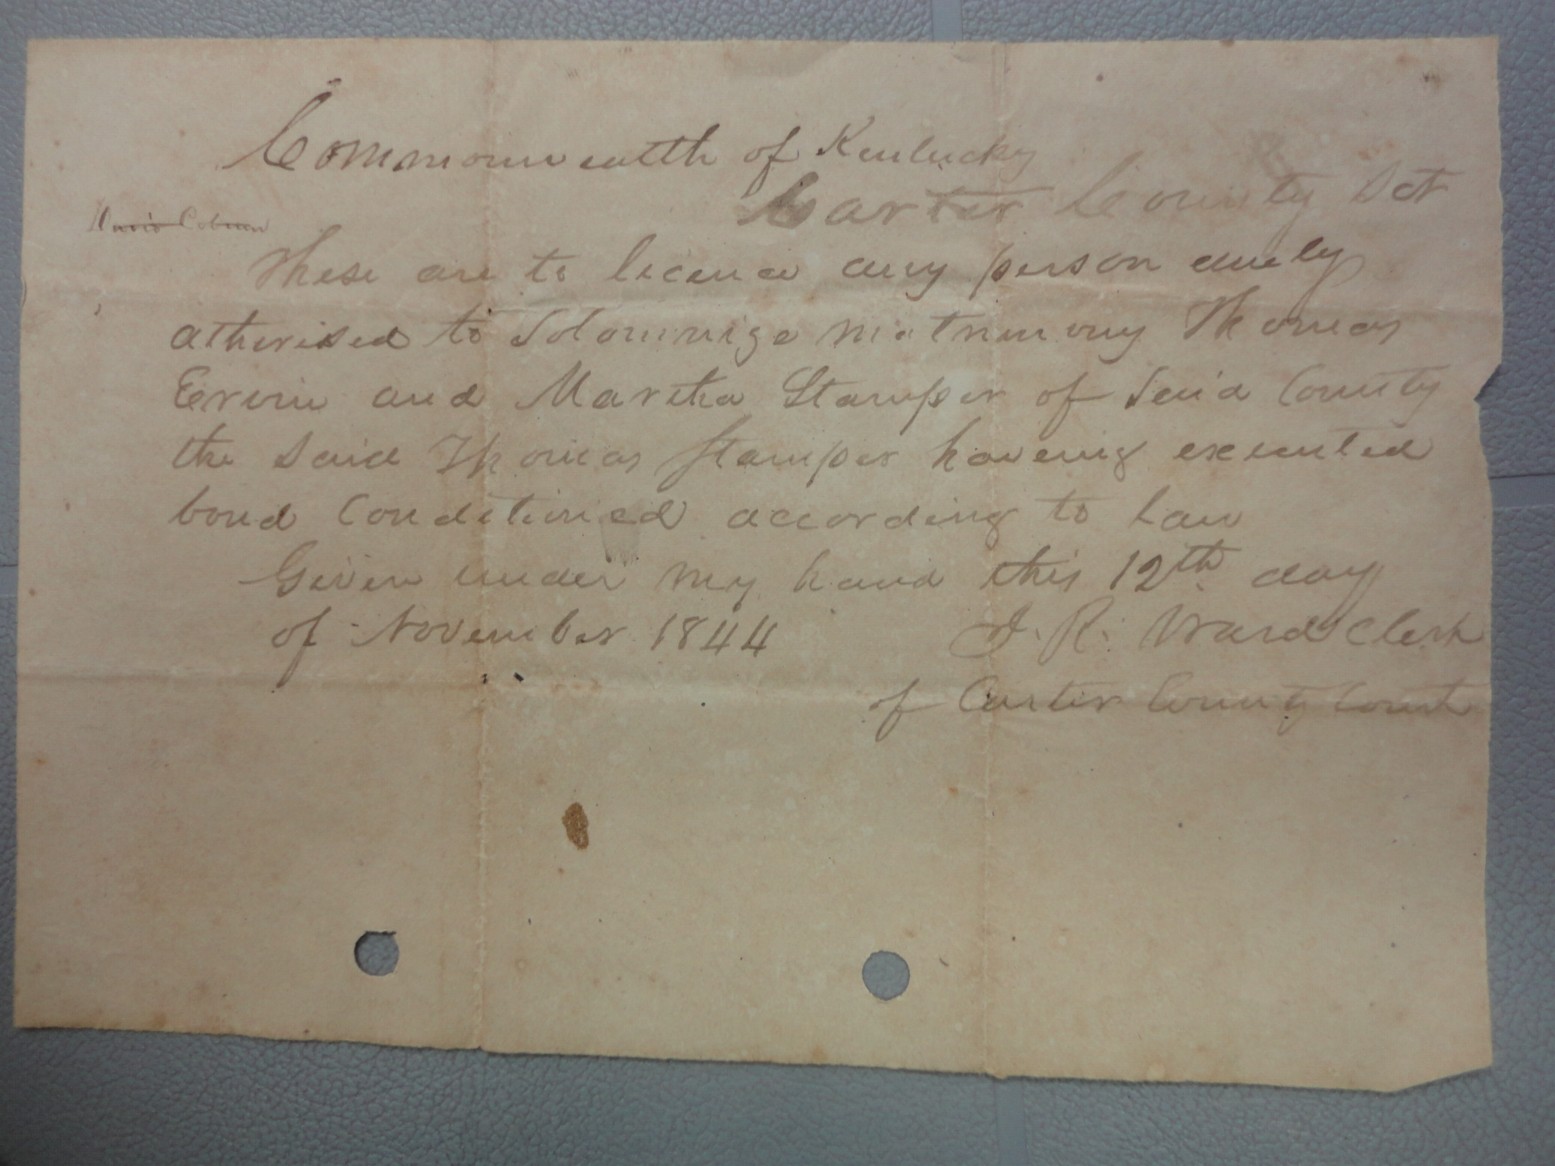 Commonwealth of Kentucky
Carter County Sct
These are to licence any person duely
atherised to Solomnize matrimony Thomas
Ervin and Martha Stamper of Said County
the Said Thomas Stamper haveing executed
bond Conditioned according to Law
Given under my hand this 12th day
of November 1844 J. R. Ward Clerk
of Carter County Court